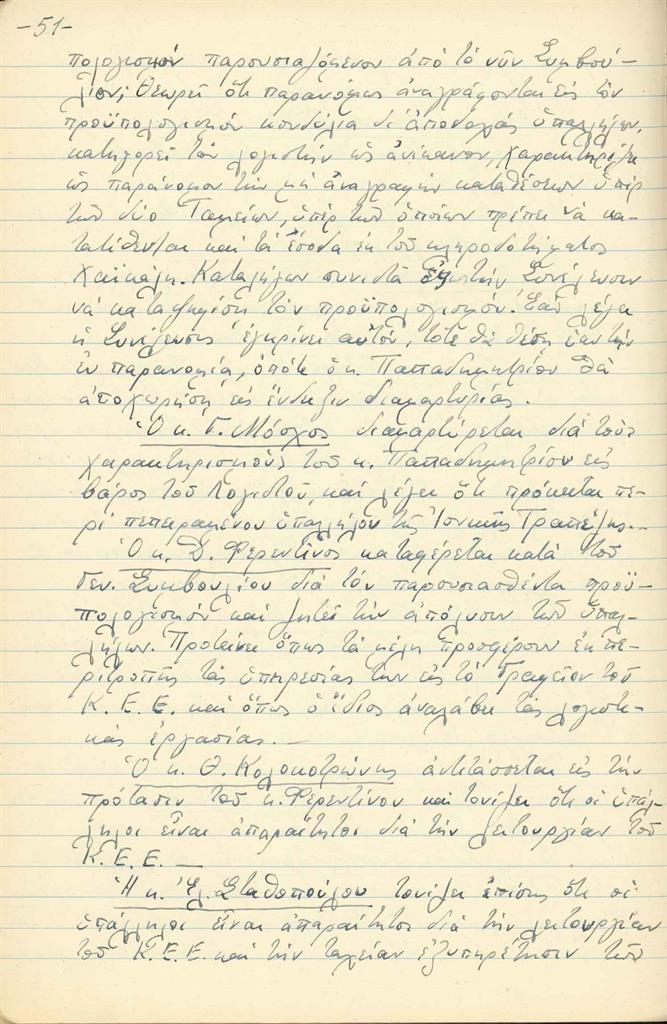 -51-
πολογισμόν παρουσιαζόμενον ἀπό τό νῦν Συμβού-
λιον; Θεωρεῖ ὅτι παρανόμως ἀναγράφονται εἰς τόν
προϋπολογισμόν κονδύλια δι' ἀποδοχάς ὑπαλλήλων,
κατηγορεῖ τόν λογιστήν ὡς ἀνίκανον, χαρακτηρίζει
ὡς παράνομον τήν μή ἀναγραφήν καταθέσεων ὑπέρ
τῶν δύο Ταμείων, ὑπέρ τῶν ὁποίων πρέπει νά κα-
τατίθενται καί τά ἔσοδα ἐκ τοῦ κληροδοτήματος
Χαϊκάλη. Καταλήγων συνιστᾶ εἰς τήν Συνέλευσιν
νά καταψηφίση τόν προϋπολογισμόν. Ἐάν λέγει
ἡ Συνέλευσις ἐγκρίνει αὐτόν, τότε θά θέση ἑαυτήν
ἐν παρανομίᾳ, ὁπότε ὁ κ. Παπαδημητρίου θά
ἀποχωρήση εἰς ἔνδειξιν διαμαρτυρίας.
Ὁ κ. Γ. Μόσχος διαμαρτύρεται διά τούς
χαρακτηρισμούς τοῦ κ. Παπαδημητρίου εἰς
βάρος τοῦ Λογιστοῦ, καί λέγει ὅτι πρόκειται πε-
ρί πεπειραμένου ὑπαλλήλου τῆς Ἰονικῆς Τραπέζης.-
Ὁ κ. Δ. Φερεντῖνος καταφέρεται κατά τοῦ
Γεν. Συμβουλίου διά τόν παρουσιασθέντα προϋ-
πολογισμόν καί ζητεῖ τήν ἀπόλυσιν τῶν ὑπαλ-
λήλων. Προτείνει ὅπως τά μέλη προσφέρουν ἐκ πε-
ριτροπῆς τάς ὑπηρεσίας των εἰς τό Γραφεῖον τοῦ
Κ. Ε. Ε. καί ὅπως ὁ ἴδιος ἀναλάβει τάς λογιστι-
κάς ἐργασίας.-
Ὁ κ. Θ. Κολοκοτρώνης ἀντιτάσσεται εἰς τήν
πρότασιν τοῦ κ. Φερεντίνου καί τονίζει ὅτι οἱ ὑπάλ-
ληλοι εἶναι ἀπαραίτητοι διά τήν λειτουργίαν τοῦ
Κ. Ε. Ε. -
Ἡ κ. Ἑλ. Σταθοπούλου τονίζει ἐπίσης ὅτι οἱ
ὑπάλληλοι εἶναι ἀπαραίτητοι διά τήν λειτουργίαν
τοῦ Κ. Ε. Ε. καί τήν ταχεῖαν ἐξυπηρέτησιν τῶν